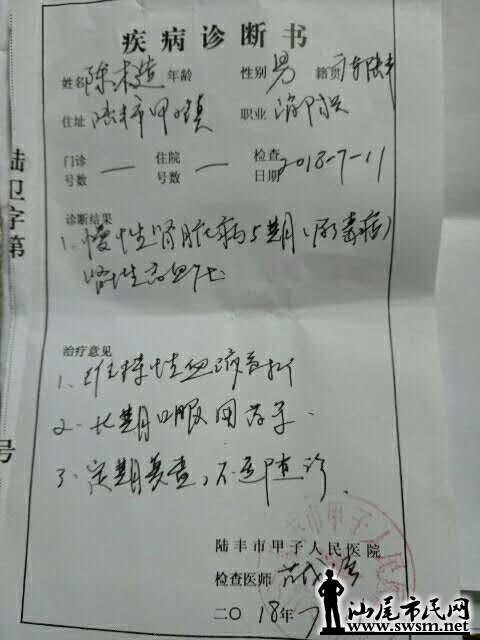 疾病诊断书
姓名 陈 年龄 性别 男 籍贯 广东陆丰
住址 陆丰市甲子镇 职业
门诊号数 — 住院号数 — 检查日期 2018-7-11
诊断结果
1. 慢性肾脏病5期(尿毒症)
肾性贫血
治疗意见
1、维持性血液透析
2、长期口服用药
3、定期复查,不适随诊.
陆丰市甲子人民医院
检查医师
二〇18年7
陆卫字第
号
汕尾市民网
www.swsm.net